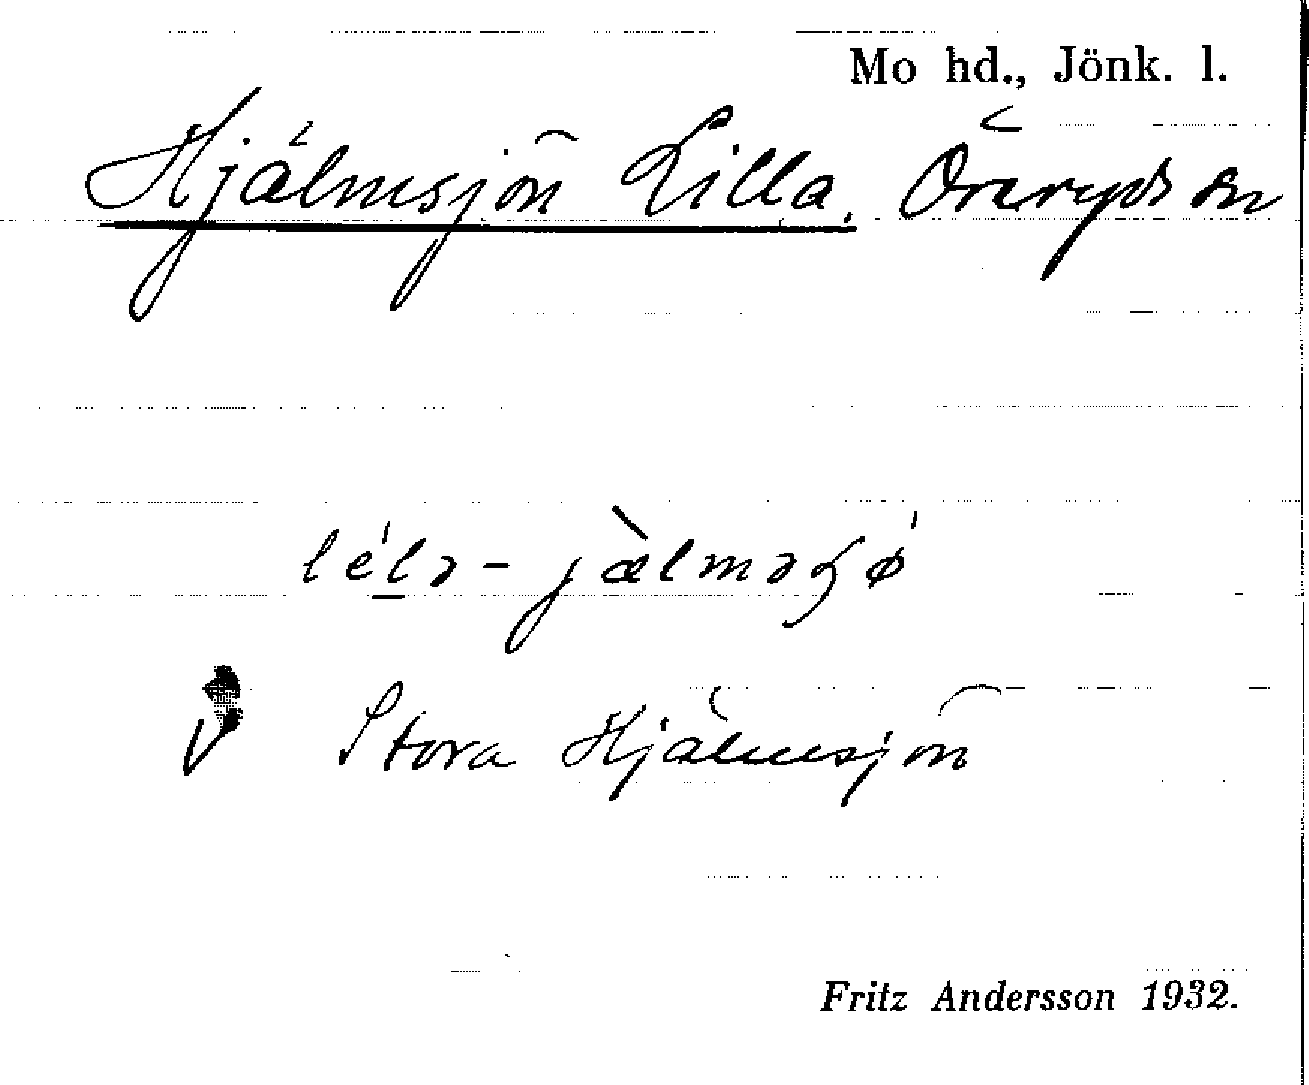 Mo hd., Jönk. l.
Hjälmsjön Lilla. Öreryds sn
léla - jàlmaʂǿ
V Stora Hjälmsjön
Fritz Andersson 1932.